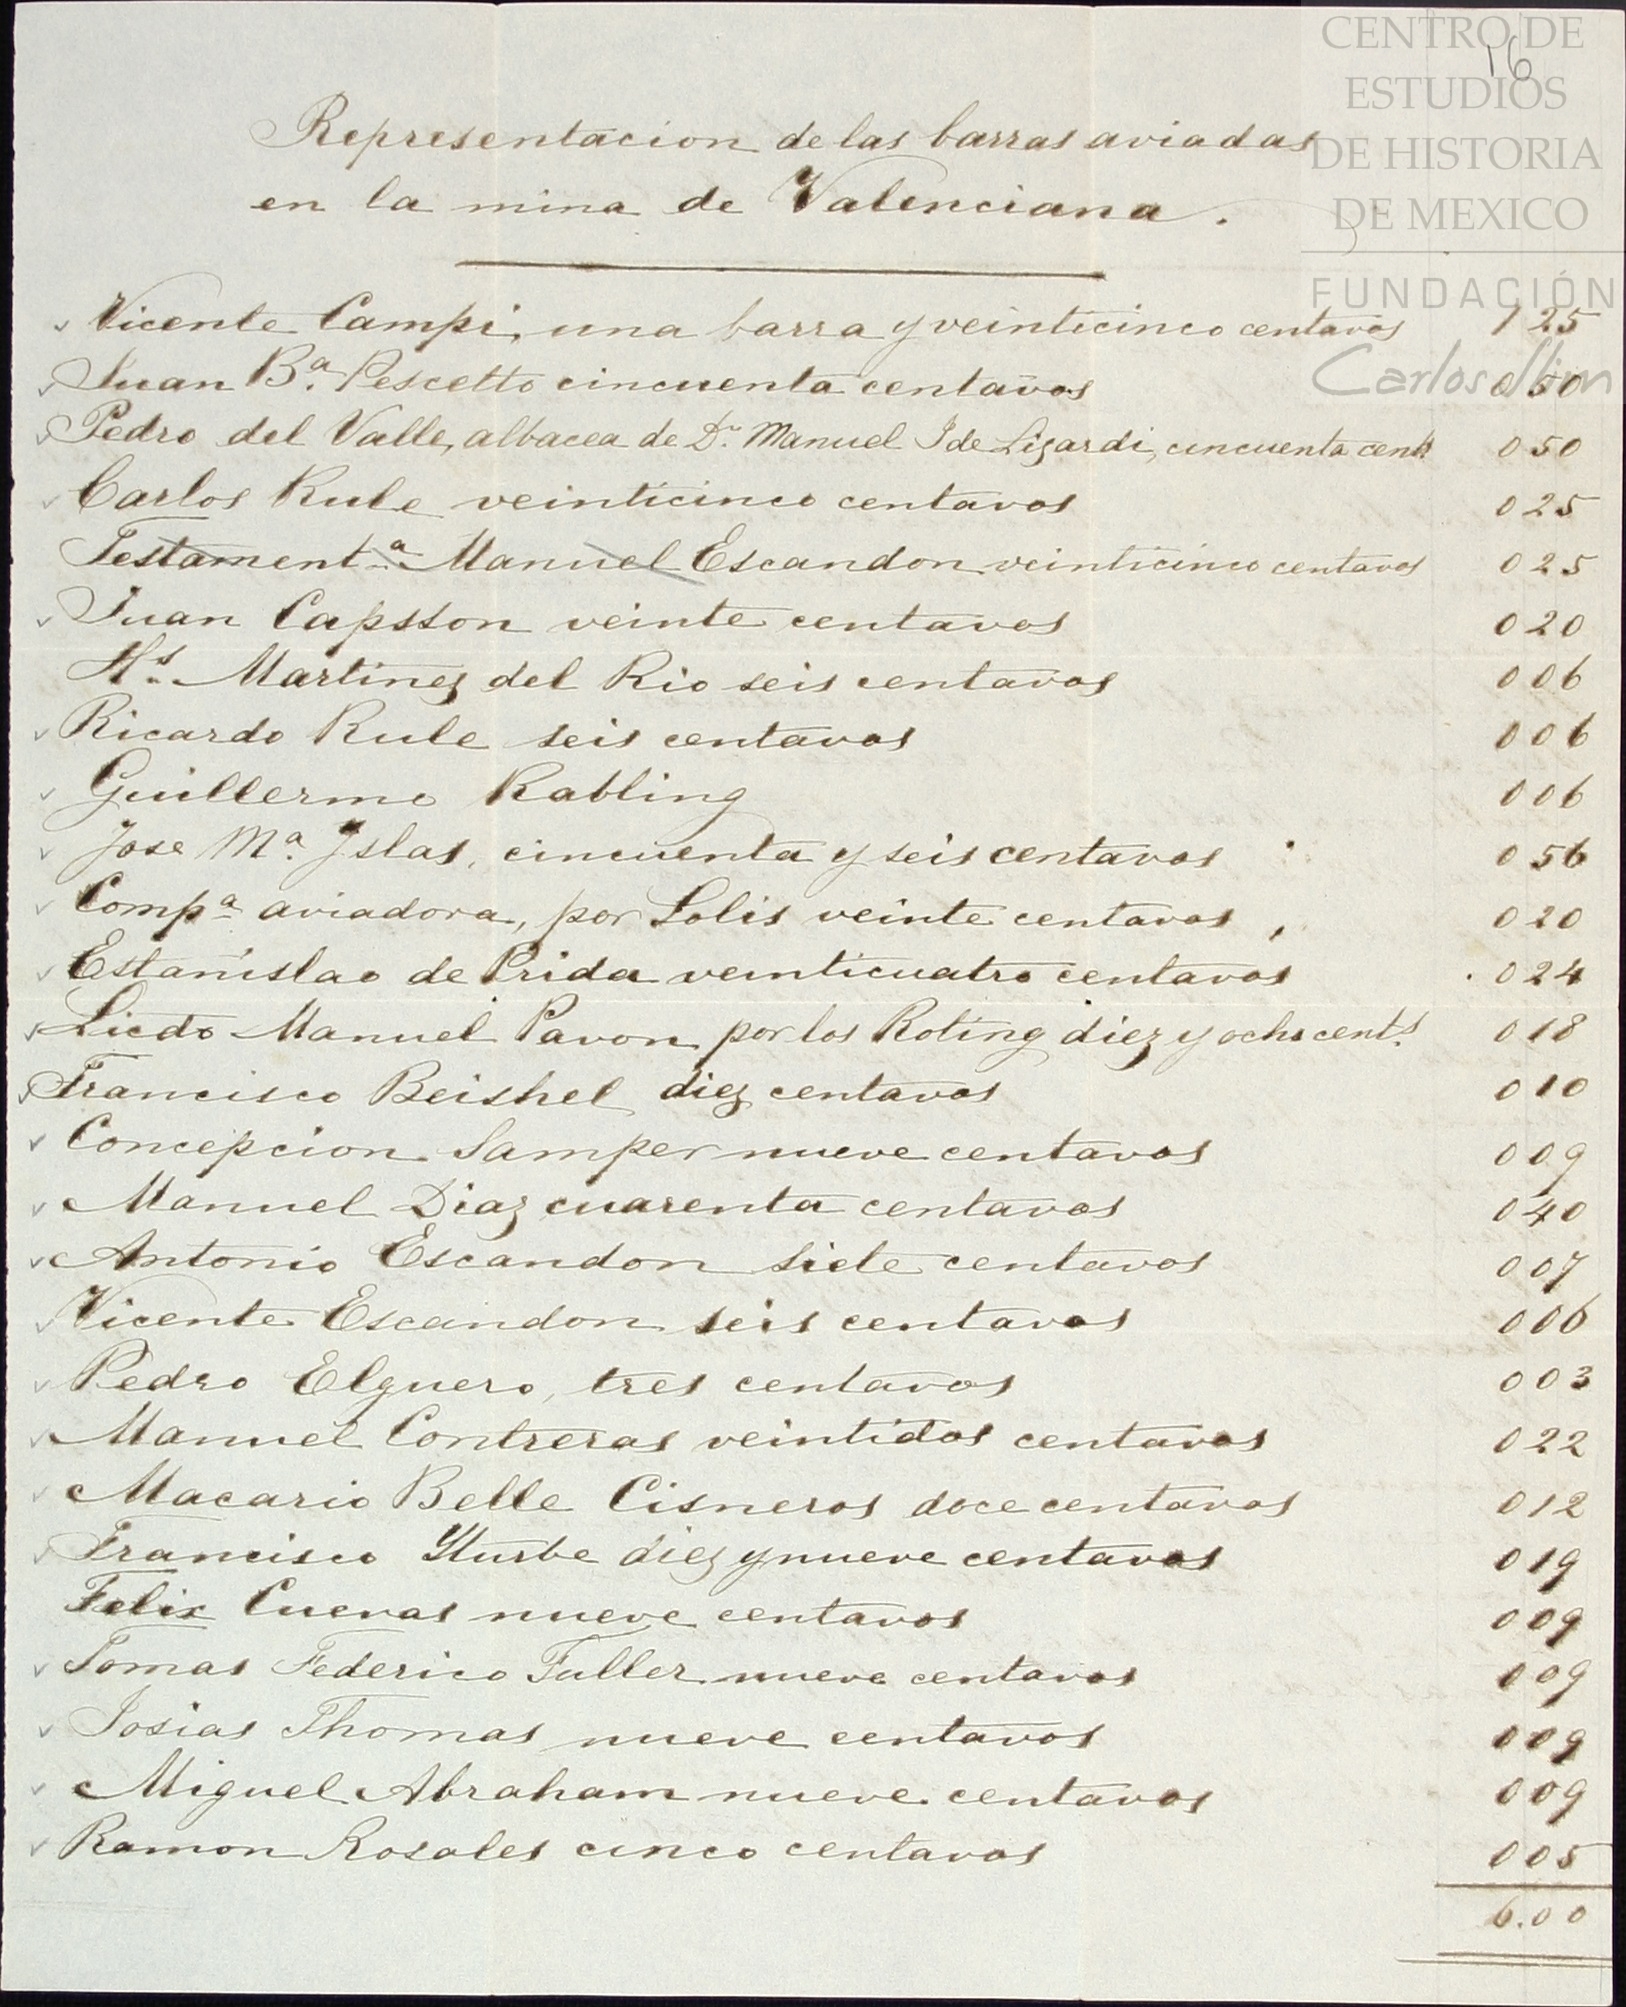 CENTRO DE
ESTUDIOS
DE HISTORIA
DE MEXICO
FUNDACIÓN
Carlos Slim
16
Representacion de las barras aviadas
en la mina de Valenciana.
Vicente Campi, una barra y veinticinco centavos 1 25
Juan Bª. Pescetto cincuenta centavos 0 50
Pedro del Valle, albacea de Dn. Manuel J de Lizardi, cincuenta cents 0 50
Carlos Rule veinticinco centavos 0 25
Testamentª. Manuel Escandon veinticinco centavos 0 25
Juan Capston veinte centavos 0 20
Hs. Martinez del Rio seis centavos 0 06
Ricardo Rule seis centavos 0 06
Guillermo Rabling 0 06
Jose Mª. Yslas, cincuenta y seis centavos 0 56
Compª aviadora, por Solis veinte centavos, 0 20
Estanislao de Prida veinticuatro centavos 0 24
Licdo Manuel Pavon por los Roting diez y ocho cents. 0 18
Francisco Beishel diez centavos 0 10
Concepcion Samper nueve centavos 0 09
Manuel Diaz cuarenta centavos 0 40
Antonio Escandon siete centavos 0 07
Vicente Escandon seis centavos 0 06
Pedro Elguero, tres centavos 0 03
Manuel Contreras veintidos centavos 0 22
Macario Belle Cisneros doce centavos 0 12
Francisco Yturbe diez y nueve centavos 0 19
Felix Cuevas nueve centavos 0 09
Tomas Federico Fuller nueve centavos 0 09
Josias Thomas nueve centavos 0 09
Miguel Abraham nueve centavos 0 09
Ramon Rosales cinco centavos 0 05
6.00